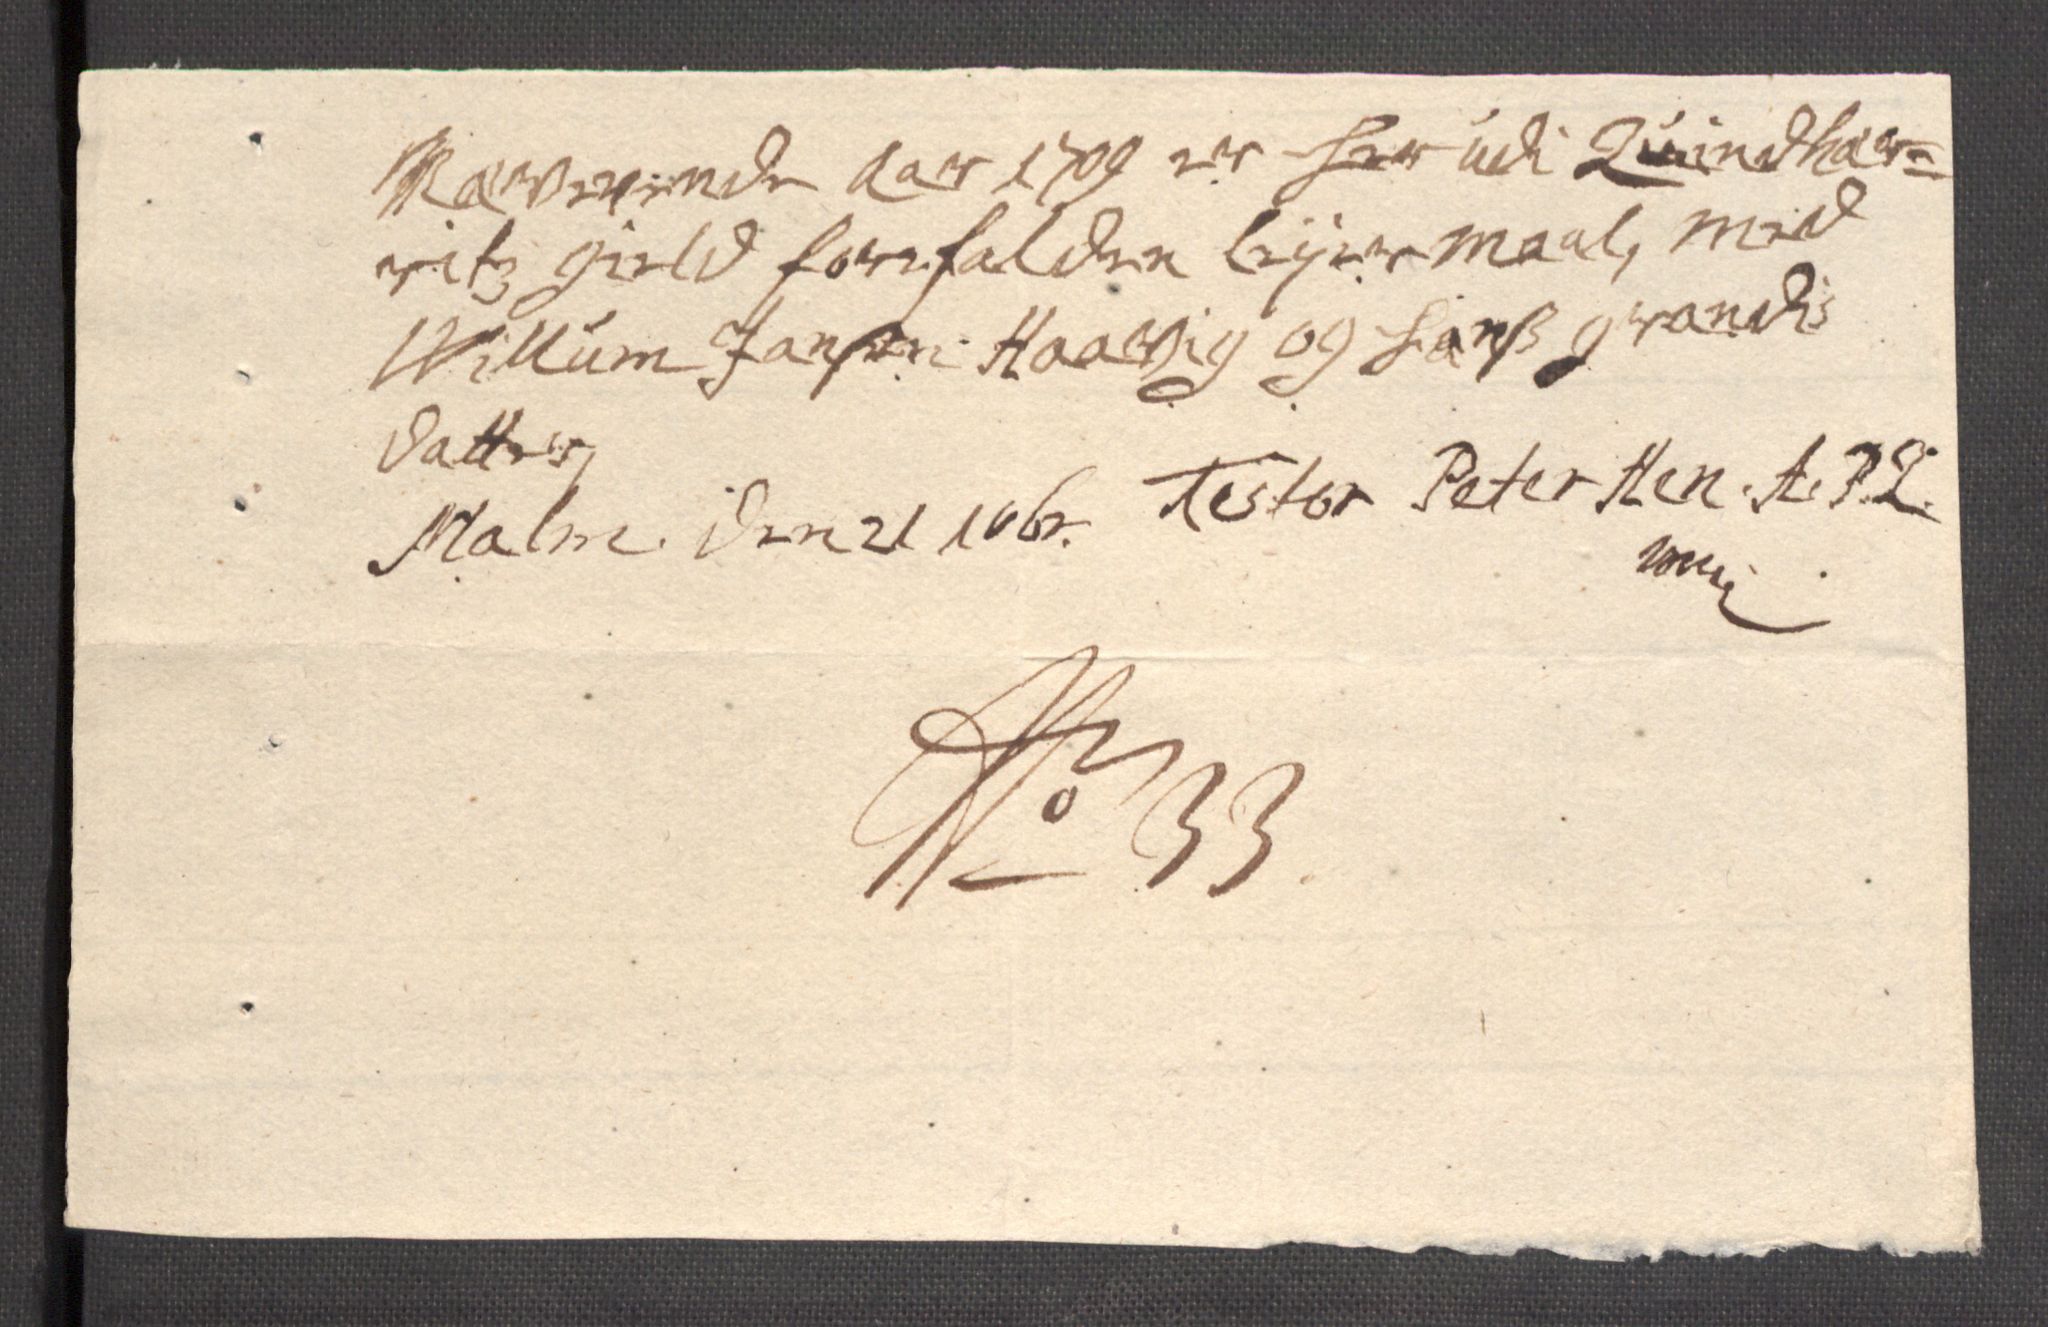 Nærverende Aar 1709 er her udi Quindhær=
ritz gield forefalden leyermaal, med
Willum Jansen Haavig og hanß grandis
datter,
Malm. den 21 10br. Testor Peter Hen. A. P. L.
mpp
No 33